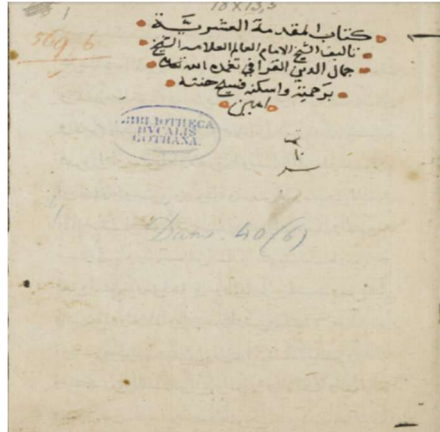 1
10 x 13,5
569 6
كتاب المقدمة العشرية
تاليف الشيخ الامام العالم العلامه الشيخ
جمال الدين القرافي تغمده الله تعالى
برحمته واسكنه فسيح جنته
امين
BIBLIOTHECA
DVCALIS
GOTHANA.
40 (6)